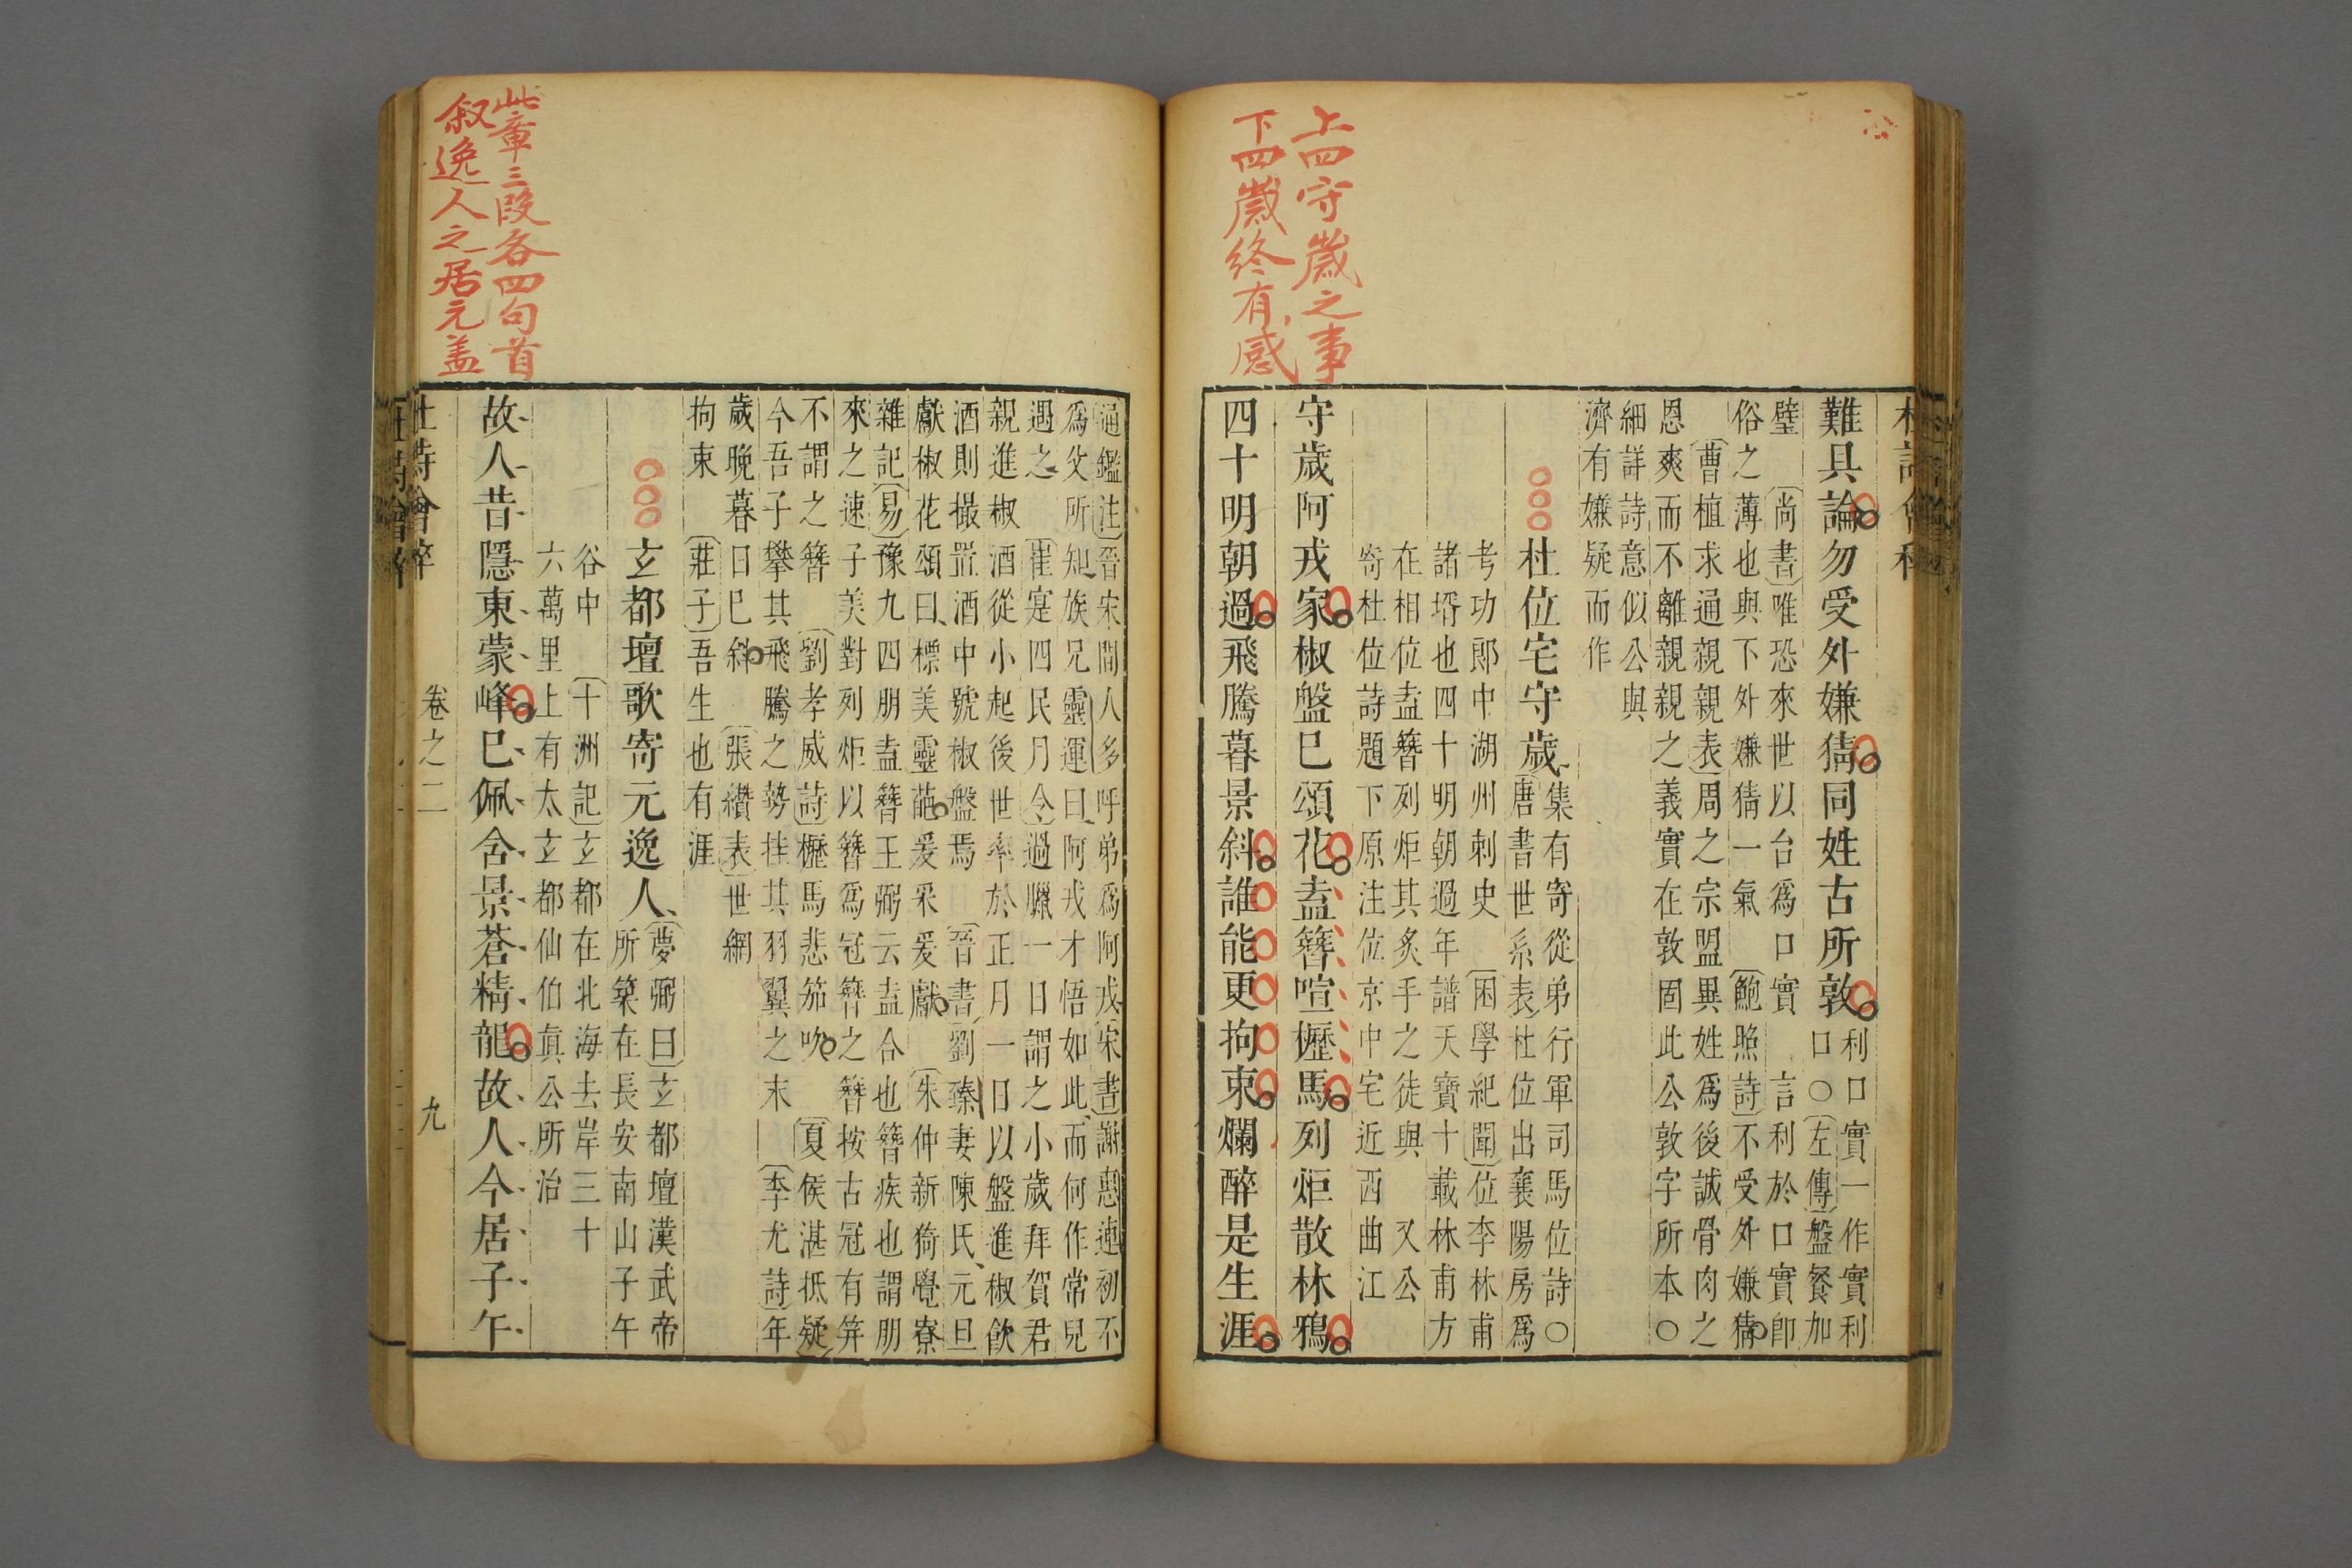 上四守歲之事
下四歲終有感
難具論勿受外嫌猜同姓古所敦
利口實一作實利
口○左傳盤餐加
璧尚書唯恐來世以台爲口實言利於口實即
俗之薄也與下外嫌猜一氣鮑照詩不受外嫌猜
曹植求通親親表周之宗盟異姓爲後誠骨肉之
恩爽而不離親親之義實在敦固此公敦字所本○
細詳詩意似公與
濟有嫌疑而作
杜位宅守歲
集有寄從弟行軍司馬位詩○
唐書世系表杜位出襄陽房爲
考功郎中湖州刺史困學紀聞位李林甫
諸壻也四十明朝過年譜天寶十載林甫方
在相位盍簪列炬其炙手之徒與又公
寄杜位詩題下原注位京中宅近西曲江
守歲阿戎家椒盤已頌花盍簪喧櫪馬列炬散林鴉
四十明朝過飛騰暮景斜誰能更拘束爛醉是生涯
此章三段各四句首
叙逸人之居元盖
通鑑注晉宋間人多呼弟爲阿戎宋書謝惠連初不
爲父所知族兄靈運曰阿戎才悟如此而何作常兒
遇之崔寔四民月令過臘一日謂之小歲拜賀君
親進椒酒從小起後世率於正月一日以盤進椒飲
酒則撮罝酒中號椒盤焉晉書劉臻妻陳氏元旦
獻椒花頌曰標美靈葩爰采爰獻朱仲新猗覺寮
雜記易豫九四朋盍簪王弼云盍合也簪疾也謂朋
來之速子美對列炬以簪爲冠簪之簪按古冠有笄
不謂之簪劉孝威詩櫪馬悲笳吹夏侯湛抵疑
今吾子攀其飛騰之勢挂其羽翼之末李尤詩年
歲晚暮日已斜張纘表世網
拘束莊子吾生也有涯
玄都壇歌寄元逸人
夢弼曰玄都壇漢武帝
所築在長安南山子午
谷中十洲記玄都在北海去岸三十
六萬里上有太玄都仙伯真公所治
故人昔隱東蒙峰已佩含景蒼精龍故人今居子午
杜詩會稡
卷之二
九